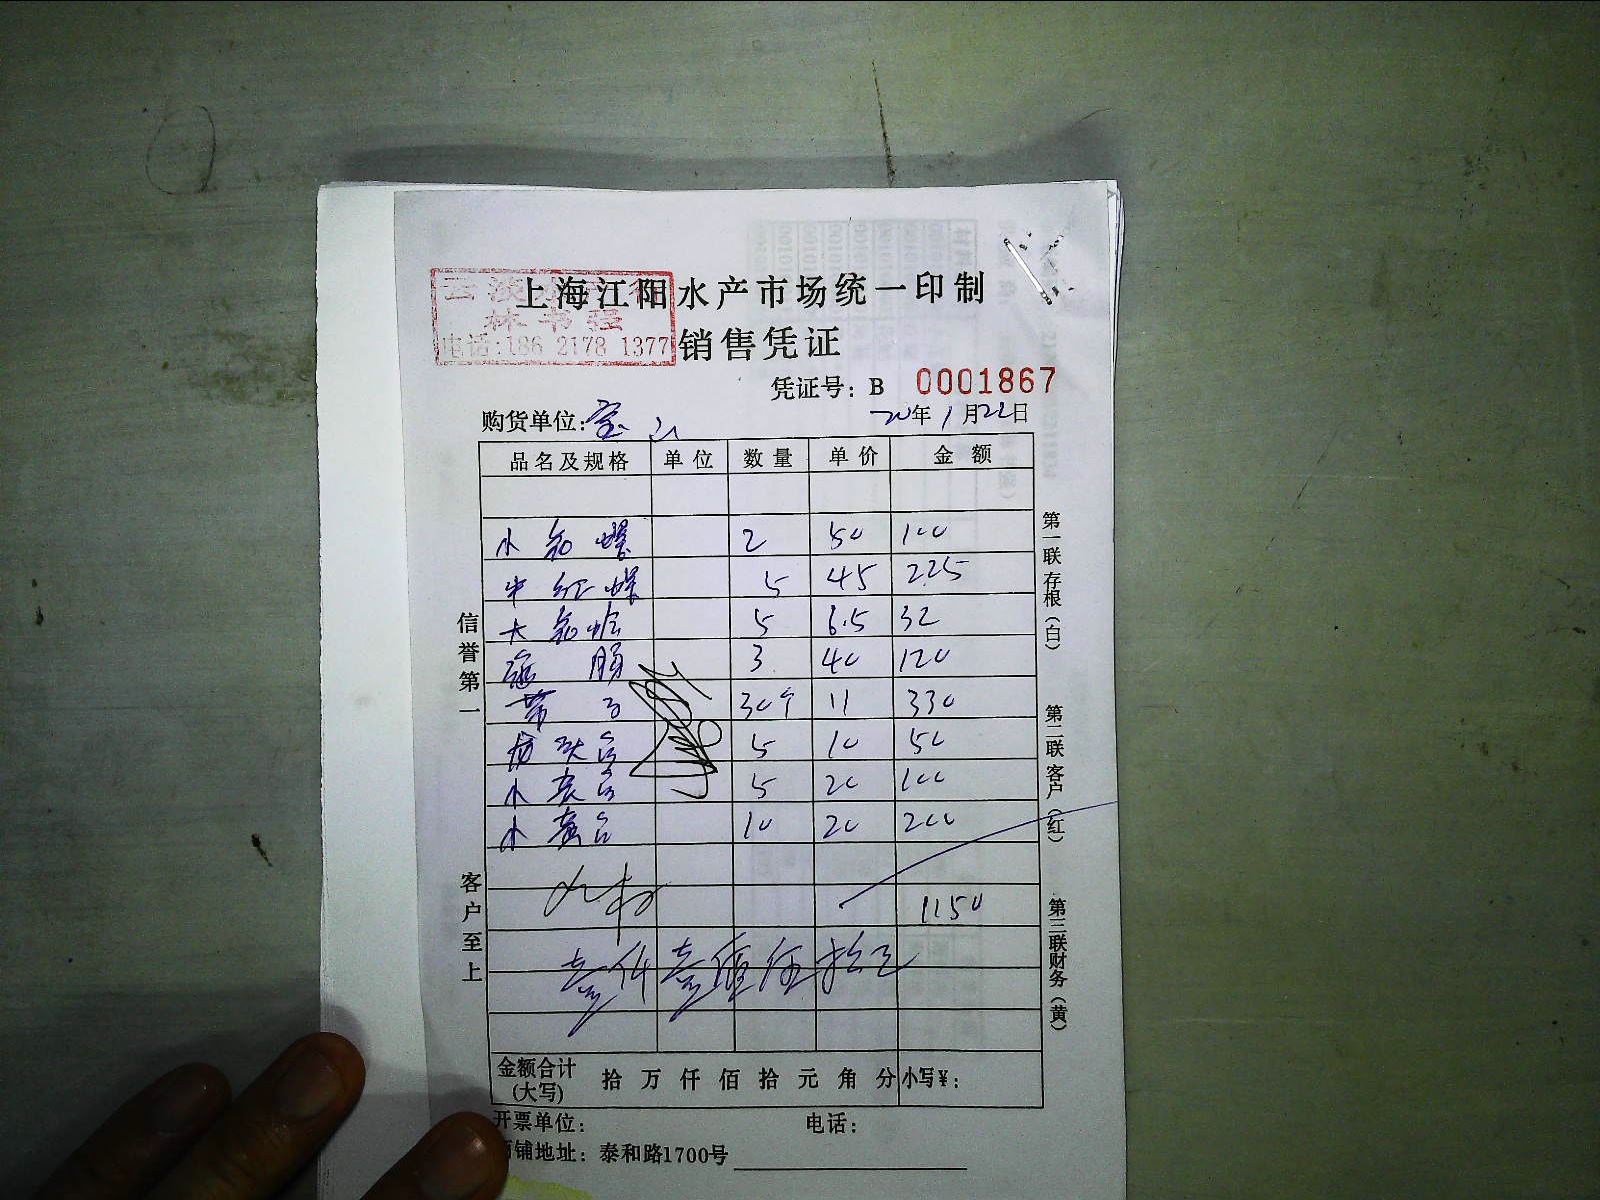 上海江阳水产市场统一印制
林书强
电话:186 2178 1377
销售凭证
凭证号: B 0001867
购货单位: 宝山
20年1月22日
品名及规格 单位 数量 单价 金额
小 螺 2 50 100
中红螺 5 45 225
大 5 6.5 32
肠 3 40 120
带子 30个 11 330
5 10 50
小 5 20 100
小 10 20 200
1150
壹仟壹佰伍拾元
金额合计(大写) 拾 万 仟 佰 拾 元 角 分 小写¥:
开票单位: 电话:
铺地址: 泰和路1700号
信誉第一
客户至上
第一联存根(白)
第二联客户(红)
第三联财务(黄)